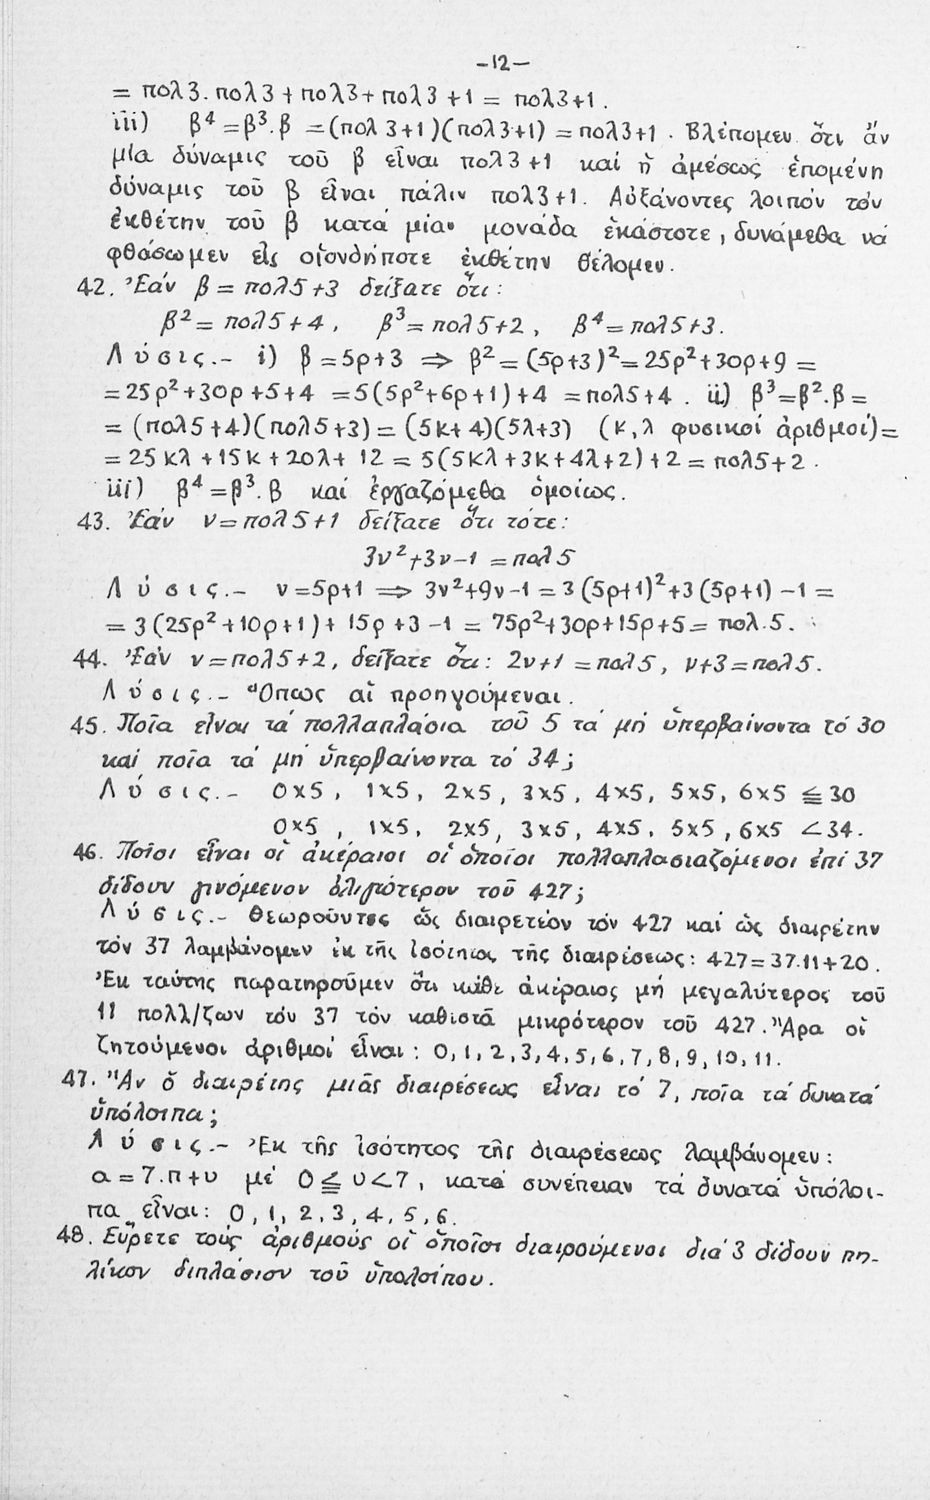 -12-
= πολ3.πολ3+πολ3+πολ3+1 = πολ3+1.
iii) β⁴=β³.β =(πολ3+1)(πολ3+1) =πολ3+1. Βλέπομεν ὅτι ἄν
μία δύναμις τοῦ β εἶναι πολ3+1 καί ἡ ἀμέσως ἑπομένη
δύναμις τοῦ β εἶναι πάλιν πολ3+1. Αὐξάνοντες λοιπόν τόν
ἐκθέτην τοῦ β κατά μίαν μονάδα ἑκάστοτε, δυνάμεθα νά
φθάσωμεν εἰς οἱονδήποτε ἐκθέτην θέλομεν.
42. Ἐάν β = πολ5+3 δείξατε ὅτι:
β² = πολ5+4, β³= πολ5+2, β⁴=πολ5+3.
Λύσις.- i) β=5ρ+3 ⇒ β²=(5ρ+3)²=25ρ²+30ρ+9 =
=25ρ²+30ρ+5+4 =5(5ρ²+6ρ+1)+4 =πολ5+4. ii) β³=β².β=
= (πολ5+4)(πολ5+3)= (5κ+4)(5λ+3) (κ,λ φυσικοί ἀριθμοί)=
= 25κλ+15κ+20λ+12 = 5(5κλ+3κ+4λ+2)+2 = πολ5+2.
iii) β⁴=β³.β καί ἐργαζόμεθα ὁμοίως.
43. Ἐάν ν=πολ5+1 δείξατε ὅτι τότε:
3ν²+3ν-1 =πολ5
Λύσις.- ν=5ρ+1 ⇒ 3ν²+9ν-1 = 3(5ρ+1)²+3(5ρ+1)-1 =
= 3(25ρ²+10ρ+1)+ 15ρ+3-1 = 75ρ²+30ρ+15ρ+5= πολ.5.
44. Ἐάν ν=πολ5+2, δείξατε ὅτι: 2ν+1=πολ5, ν+3=πολ5.
Λύσις.- Ὅπως αἱ προηγούμεναι.
45. Ποῖα εἶναι τά πολλαπλάσια τοῦ 5 τά μή ὑπερβαίνοντα τό 30
καί ποῖα τά μή ὑπερβαίνοντα τό 34;
Λύσις.- 0x5, 1x5, 2x5, 3x5, 4x5, 5x5, 6x5 ≦ 30
0x5, 1x5, 2x5, 3x5, 4x5, 5x5, 6x5 <34.
46. Ποῖοι εἶναι οἱ ἀκέραιοι οἱ ὁποῖοι πολλαπλασιαζόμενοι ἐπί 37
δίδουν γινόμενον ὀλιγώτερον τοῦ 427;
Λύσις.- Θεωροῦντες ὡς διαιρετέον τόν 427 καί ὡς διαιρέτην
τόν 37 λαμβάνομεν ἐκ τῆς ἰσότητος τῆς διαιρέσεως: 427=37.11+20.
Ἐκ ταύτης παρατηροῦμεν ὅτι κάθε ἀκέραιος μή μεγαλύτερος τοῦ
11 πολλ/ζων τόν 37 τόν καθιστᾶ μικρότερον τοῦ 427. Ἄρα οἱ
ζητούμενοι ἀριθμοί εἶναι: 0,1,2,3,4,5,6,7,8,9,10,11.
47. Ἄν ὁ διαιρέτης μιᾶς διαιρέσεως εἶναι τό 7, ποῖα τά δυνατά
ὑπόλοιπα;
Λύσις.- Ἐκ τῆς ἰσότητος τῆς διαιρέσεως λαμβάνομεν:
α=7.π+υ μέ 0≦υ<7, κατά συνέπειαν τά δυνατά ὑπόλοι-
πα εἶναι: 0,1,2,3,4,5,6.
48. Εὕρετε τούς ἀριθμούς οἱ ὁποῖοι διαιρούμενοι διά 3 δίδουν πη-
λίκον διπλάσιον τοῦ ὑπολοίπου.